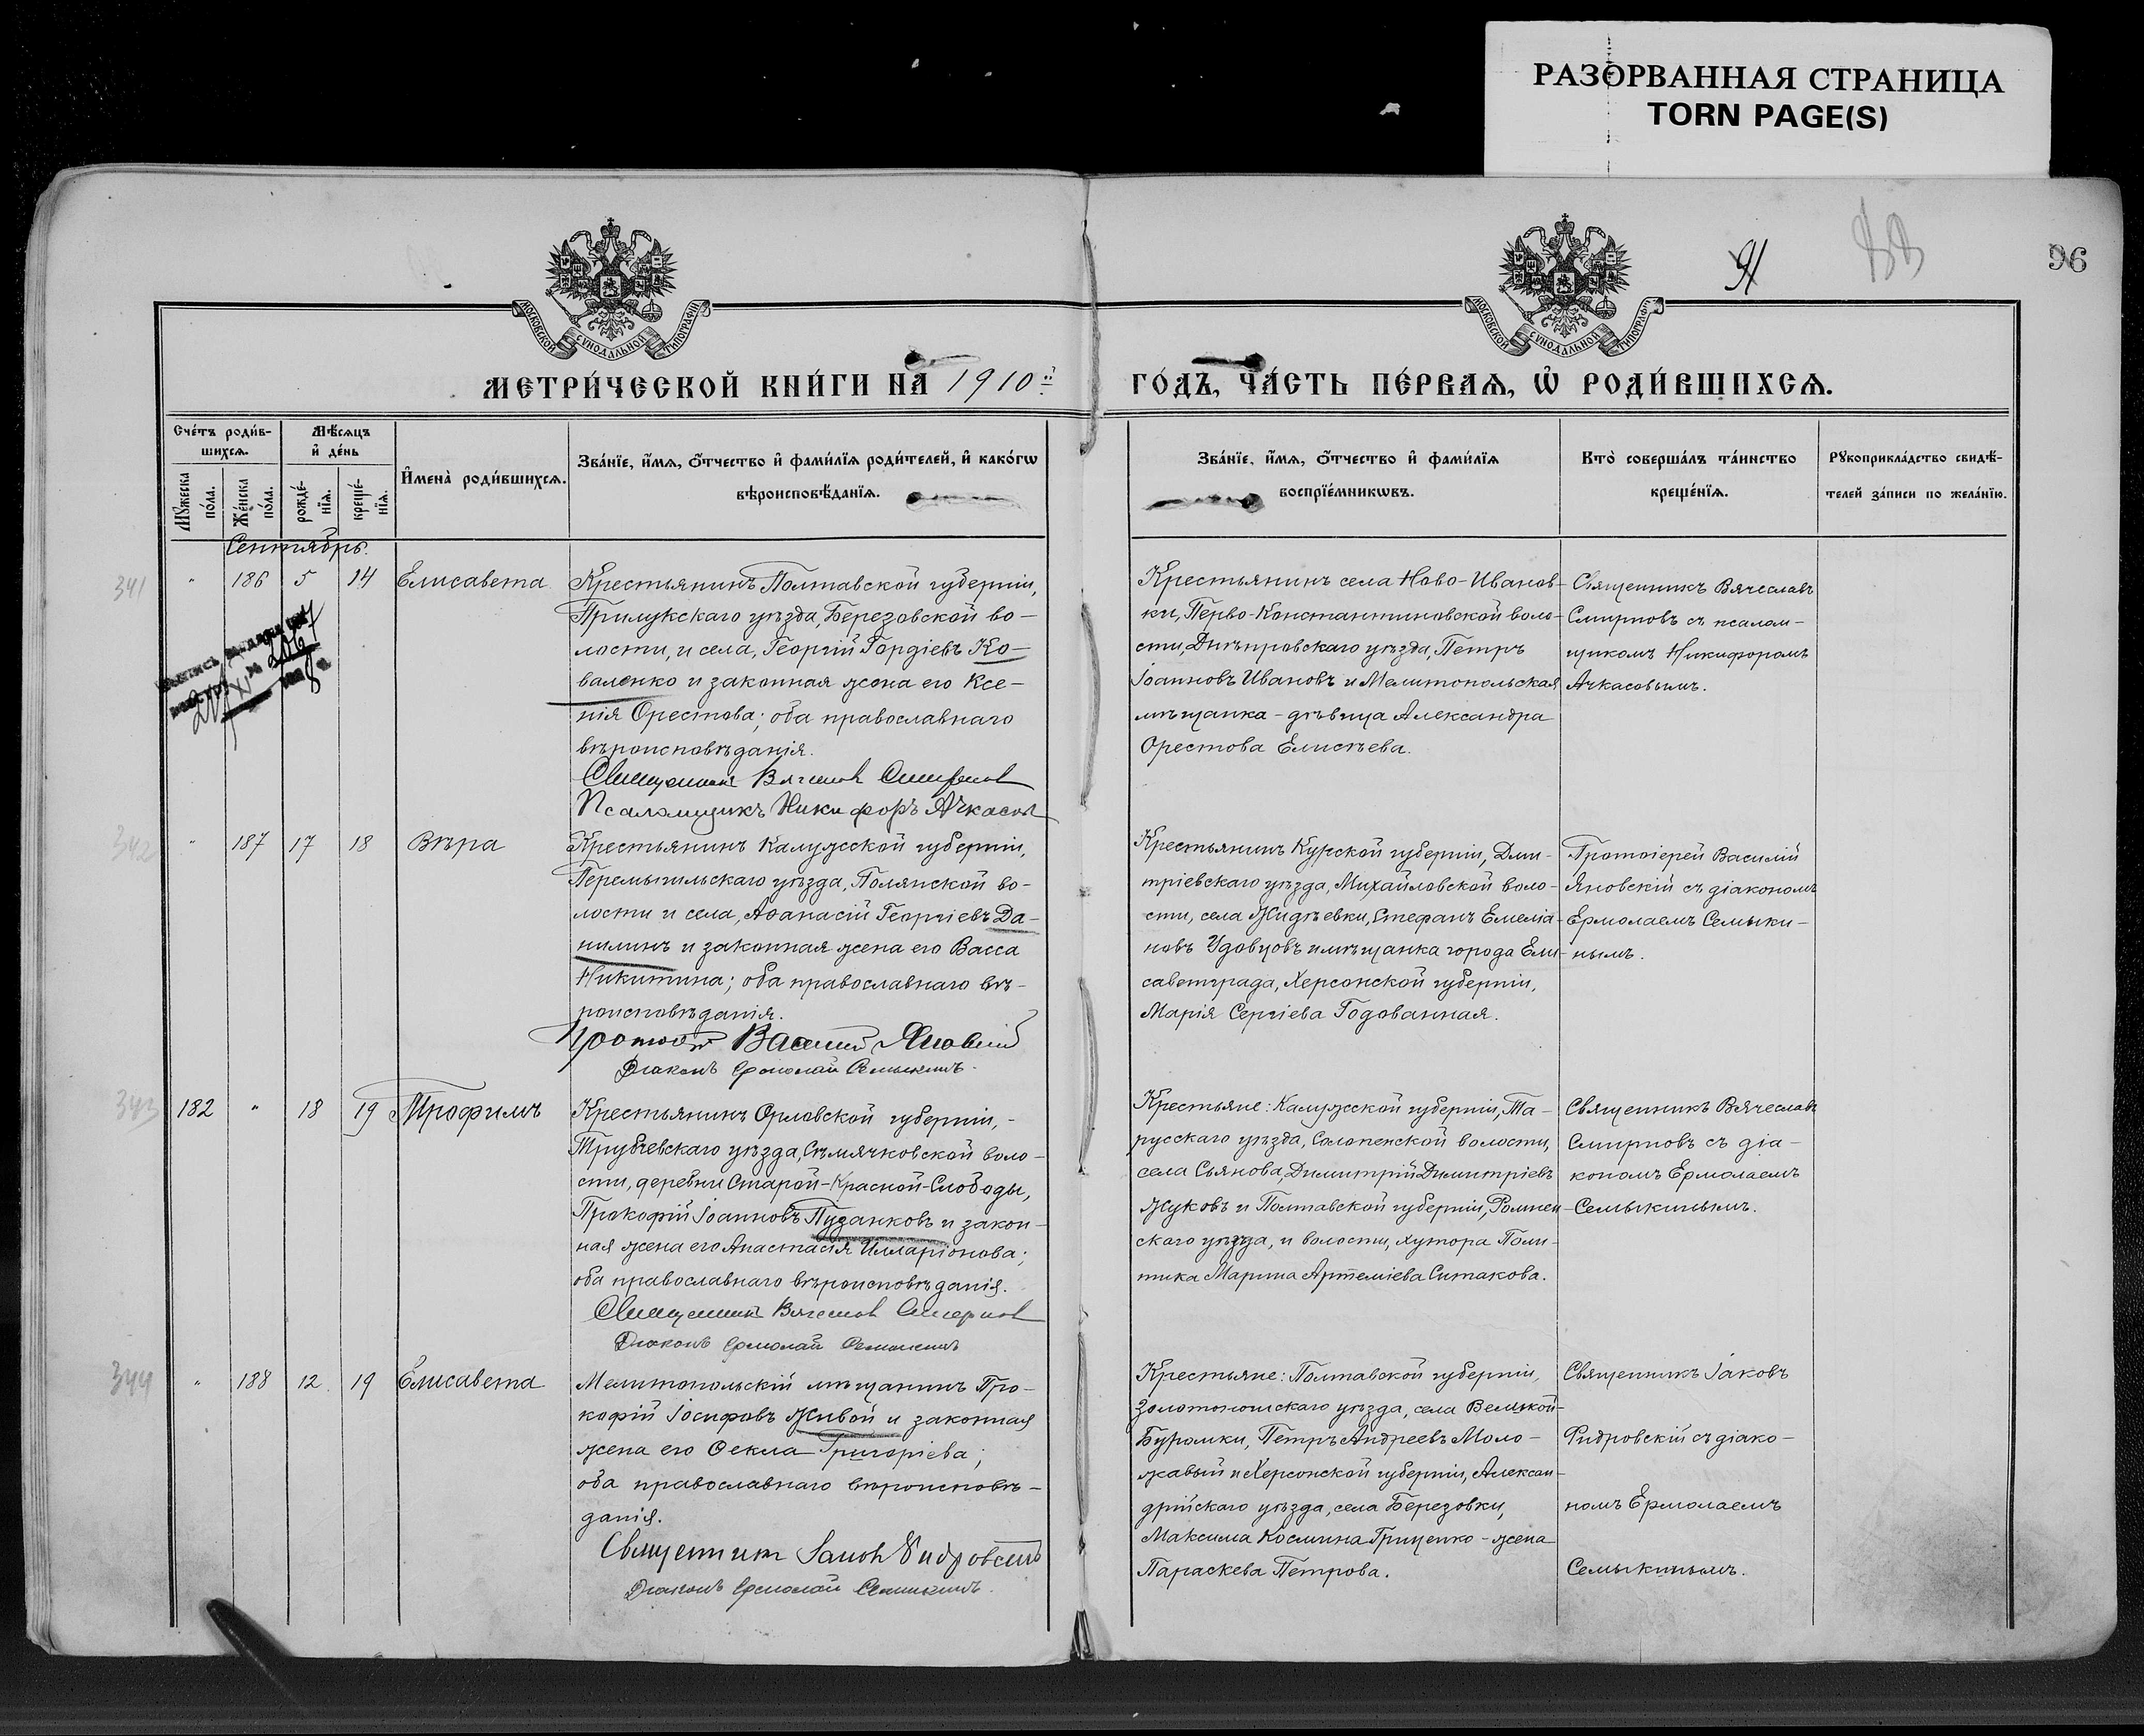 РАЗОРВАННАЯ СТРАНИЦА
TORN PAGE(S)
91
96
МОСКОВСКОЙ СѴНОДАЛЬНОЙ ТИПОГРАФІИ
МОСКОВСКОЙ СѴНОДАЛЬНОЙ ТИПОГРАФІИ
МЕТРИ́ЧЕСКОЙ КНИ́ГИ НА 1910й
ГО́ДЪ, ЧА́СТЬ ПЕ́РВАѦ, Ѡ҆ РОДИ́ВШИХСѦ.
Сче́тъ роди́в-
шихсѧ.
Мѣ́сѧцъ
и҆ де́нь
Мꙋ́жеска по́ла.
Же́нска по́ла.
рожде́-
нїѧ.
креще́-
нїѧ.
И҆мена̀ роди́вшихсѧ.
Зва́нїе, и҆́мѧ, ѻ҆́тчество и҆ фами́лїѧ роди́телей, и҆ како́гѡ
вѣроисповѣ́данїѧ.
Зва́нїе, и҆́мѧ, ѻ҆́тчество и҆ фами́лїѧ
воспрїе́мникѡвъ.
Кто̀ соверша́лъ та́инство
креще́нїѧ.
Рꙋкоприкла́дство свидѣ́-
телей за́писи по жела́нїю.
Сентябрь.
341
" 186 5 14 Елисавета
Крестьянинъ Полтавской губерніи,
Прилукскаго уѣзда, Березовской во-
лости, и села, Георгій Гордіевъ Ко-
валенко и законная жена его Ксе-
нія Орестова; оба православнаго
вѣроисповѣданія.
Священникъ Вячеслав Смирнов
Псаломщикъ Никифоръ Ачкасов
Крестьянинъ села Ново-Иванов-
ки, Перво-Константиновской воло-
сти, Днѣпровскаго уѣзда, Петръ
Іоанновъ Ивановъ и Мелитопольская
мѣщанка - дѣвица Александра
Орестова Елисѣева.
Священникъ Вячеславъ
Смирновъ съ псалом-
щикомъ Никифоромъ
Ачкасовымъ.
342
" 187 17 18 Вѣра
Крестьянинъ Калужской губерніи,
Перемышльскаго уѣзда, Полянской во-
лости и села, Аѳанасій Георгіевъ Да-
нилинъ и законная жена его Васса
Никитина; оба православнаго вѣ-
роисповѣданія.
Протоіерей Василій Яновскій
Діаконъ Ермолай Семыкинъ.
Крестьянинъ Курской губерніи, Дми-
тріевскаго уѣзда, Михайловской воло-
сти, села Жидѣевки, Стефанъ Емеліа-
новъ Удовцовъ и мѣщанка города Ели-
саветграда, Херсонской губерніи,
Марія Сергіева Годованная.
Протоіерей Василій
Яновскій съ діакономъ
Ермолаемъ Семыки-
нымъ.
343
182 " 18 19 Трофимъ
Крестьянинъ Орловской губерніи, -
Трубчевскаго уѣзда, Сѣмячковской воло-
сти, деревни Старой-Красной-Слободы,
Прокофій Іоанновъ Пузанковъ и закон-
ная жена его Анастасія Илларіонова;
оба православнаго вѣроисповѣданія.
Священникъ Вячеслав Смирнов
Діаконъ Ермолай Семыкинъ
Крестьяне: Калужской губерніи, Та-
русскаго уѣзда, Солопенской волости,
села Сьянова, Димитрій Димитріевъ
Жуковъ и Полтавской губерніи, Ромнен-
скаго уѣзда, и волости, хутора Поли-
тика Марина Артеміева Ситакова.
Священникъ Вячеславъ
Смирновъ съ діа-
кономъ Ермолаемъ
Семыкинымъ.
344
" 188 12 19 Елисавета
Мелитопольскій мѣщанинъ Про-
кофій Іосифовъ Живой и законная
жена его Ѳекла Григоріева;
оба православнаго вѣроисповѣ-
данія.
Священникъ Іаковъ Фидровскій
Діаконъ Ермолай Семыкинъ.
Крестьяне: Полтавской губерніи,
Золотоношскаго уѣзда, села Великой-
Буромки, Петръ Андреевъ Моло-
жавый и Херсонской губерніи, Алексан-
дрійскаго уѣзда, села Березовки,
Максима Космина Гриценко - жена
Параскева Петрова.
Священникъ Іаковъ
Фидровскій съ діако-
номъ Ермолаемъ
Семыкинымъ.